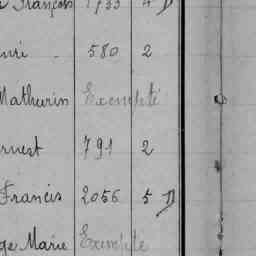 François 1733 4 D
nri - 580 2
Mathurin Exempté
rnest 791 2
Francis 2056 5 D
ge Marie Exempte